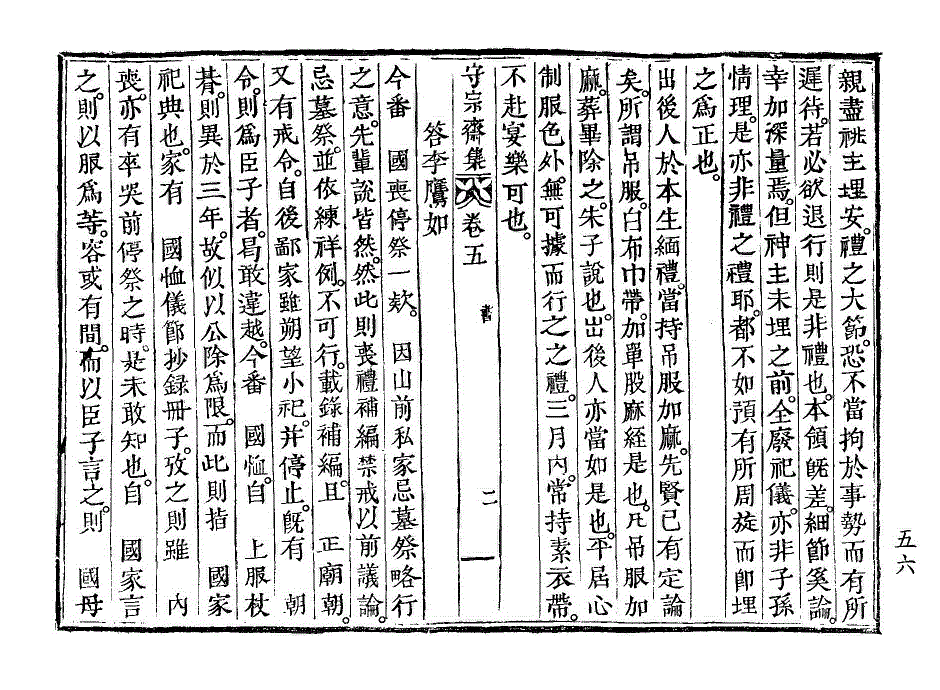 親盡祧主埋安。禮之大節。恐不當拘於事勢而有所
遲待。若必欲退行則是非禮也。本領旣差。細節奚論。
幸加深量焉。但神主未埋之前。全廢祀儀。亦非子孫
情理。是亦非禮之禮耶。都不如預有所周旋而卽埋
之爲正也。
出後人於本生緬禮。當持吊服加麻。先賢已有定論
矣。所謂吊服。白布巾帶。加單股麻絰是也。凡吊服加
麻。葬畢除之。朱子說也。出後人亦當如是也。平居心
制服色外。無可據而行之之禮。三月內。常持素衣帶。
不赴宴樂可也。
守宗齋集 卷五 書 二
答李鷹如
今番 國喪停祭一款。 因山前私家忌墓祭略行
之意。先輩說皆然。然此則喪禮補編禁戒以前議論。
忌墓祭。並依練祥例。不可行。載錄補編。且 正廟朝。
又有戒令。自後鄙家雖朔望小祀。并停止。旣有 朝
令。則爲臣子者。曷敢違越。今番 國恤。自 上服杖
朞。則異於三年。故似以公除爲限。而此則指 國家
祀典也。家有 國恤儀節抄錄冊子。攷之則雖 內
喪。亦有卒哭前停祭之時。是未敢知也。自 國家言
之。則以服爲等。容或有間。而以臣子言之。則 國母
五六